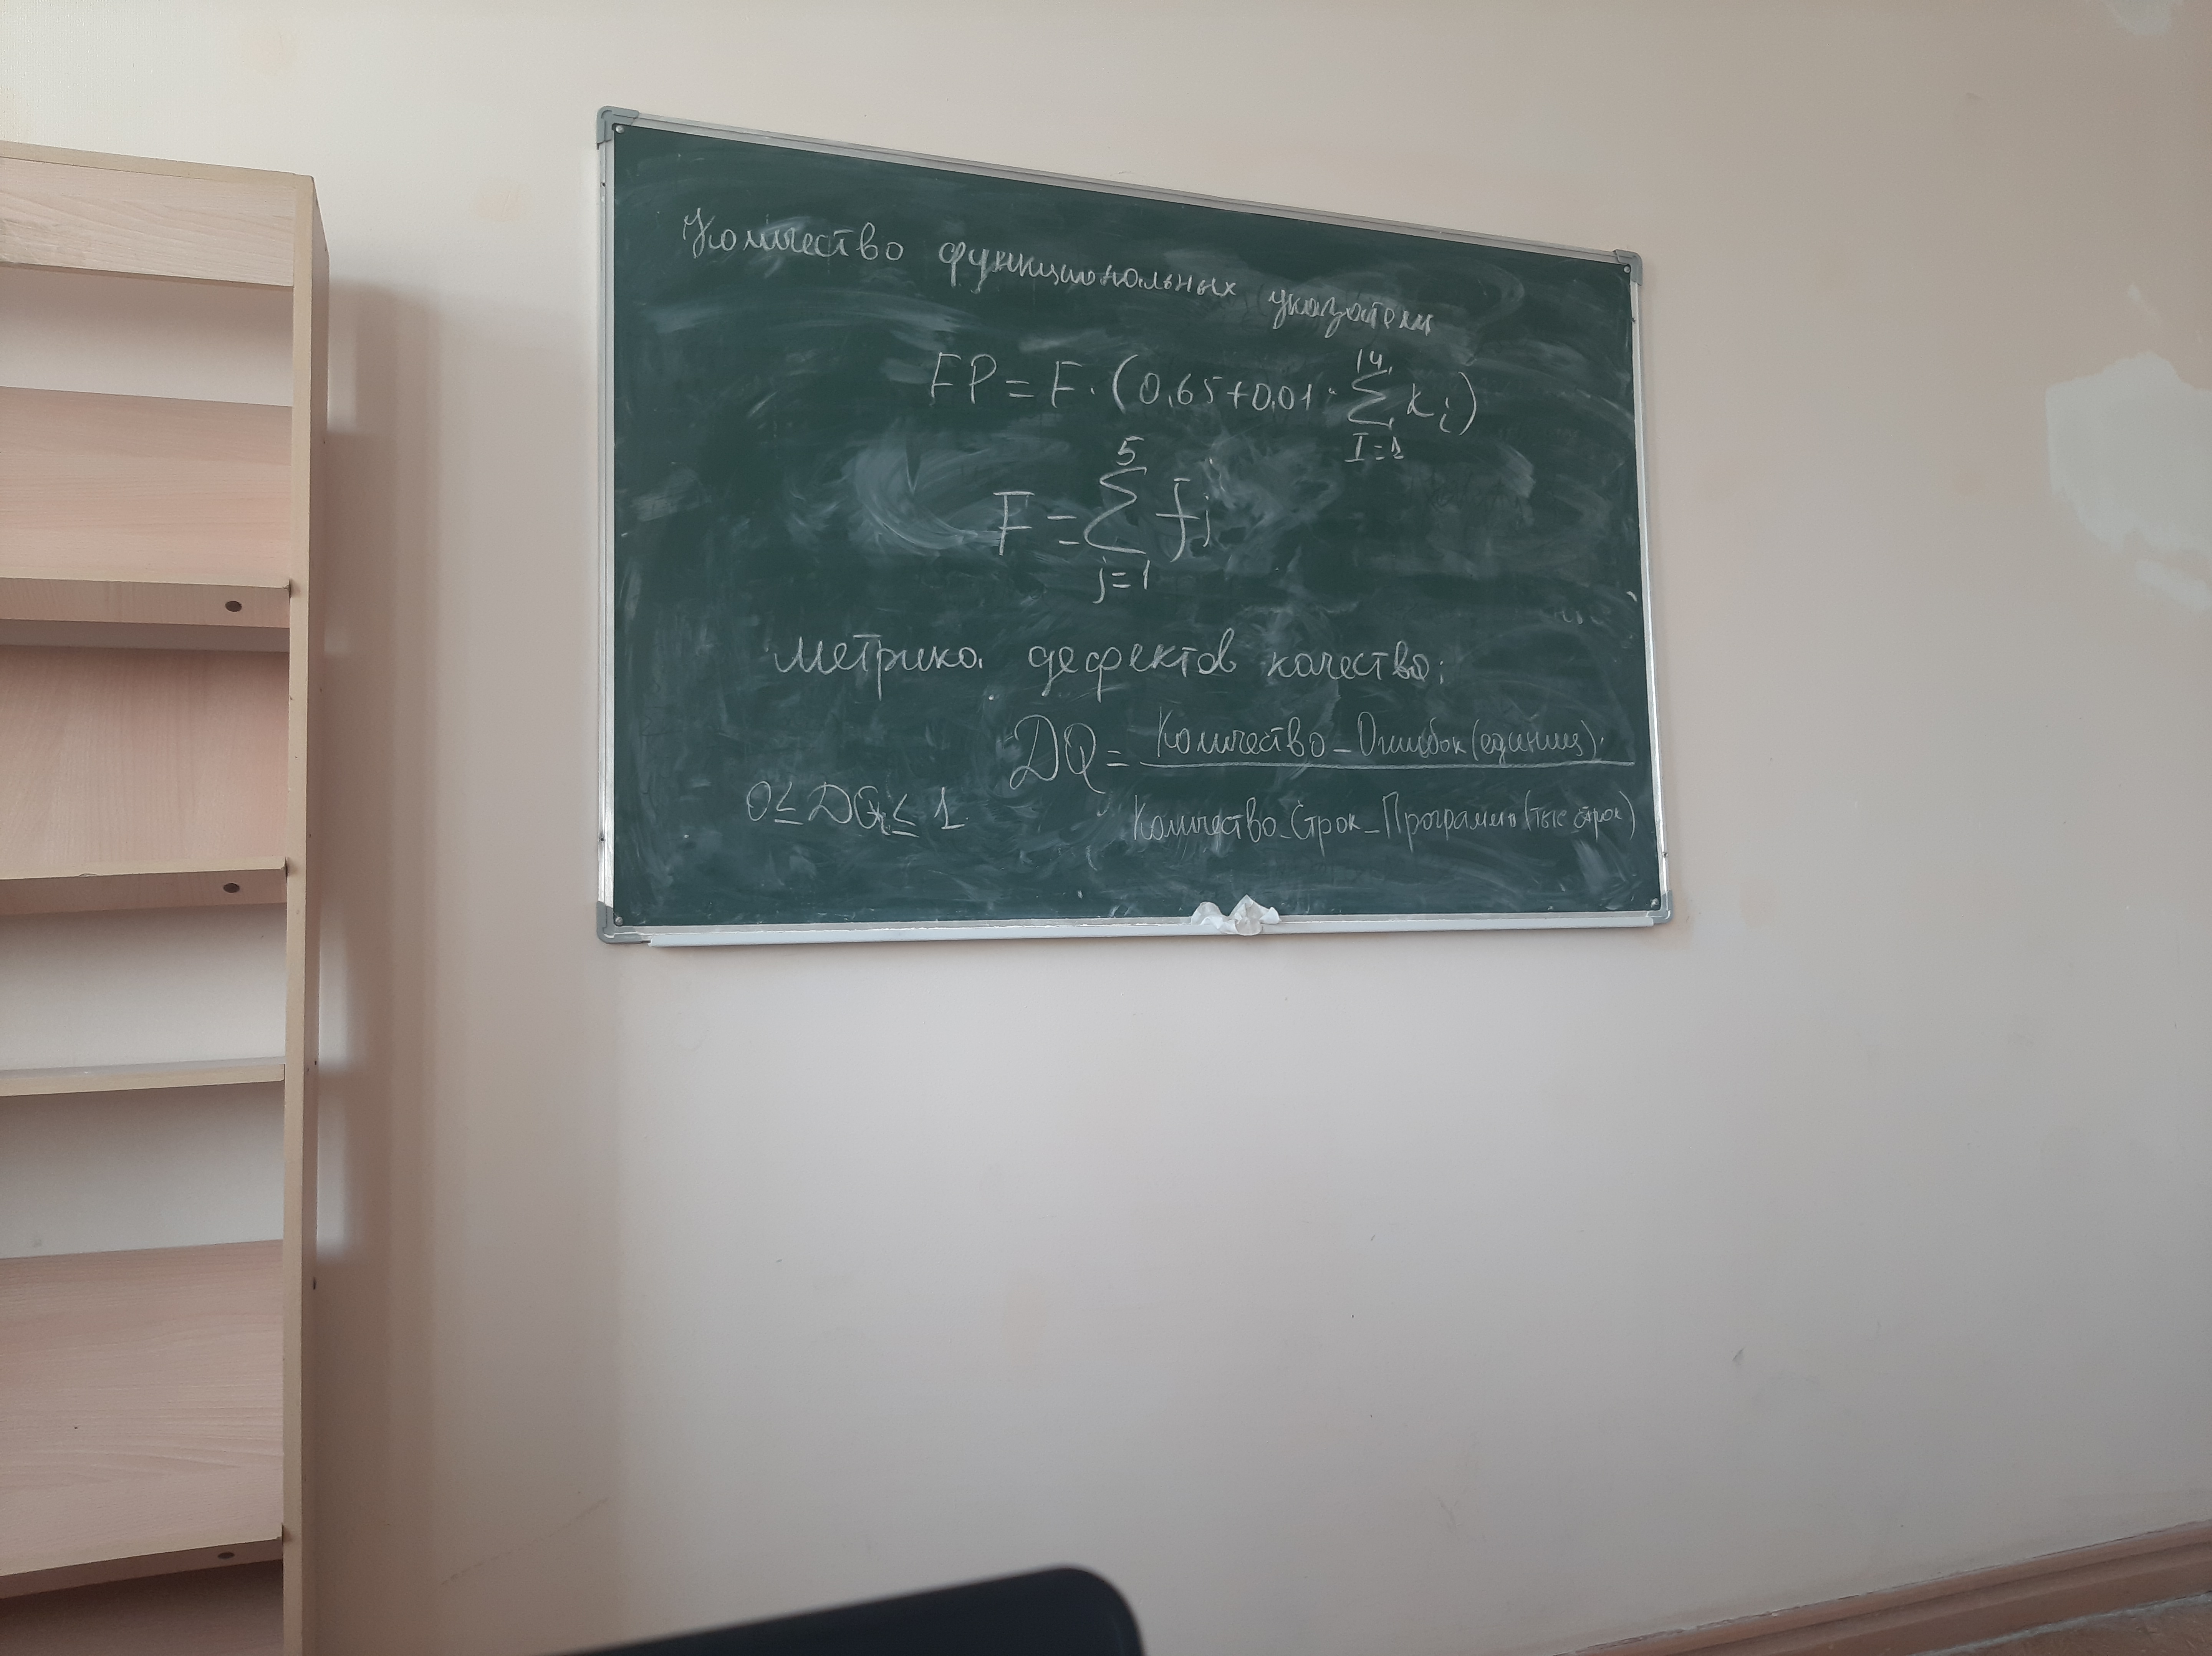 Количество функциональных указатели
FP = F · (0,65 + 0,01 · ∑ k i)
14
I=1
F = ∑ f j
5
j=1
метрика дефектов качества:
DQ = Количество_Ошибок (единиц)
0 ≤ DQ ≤ 1
Количество_Строк_Программы (тыс строк)